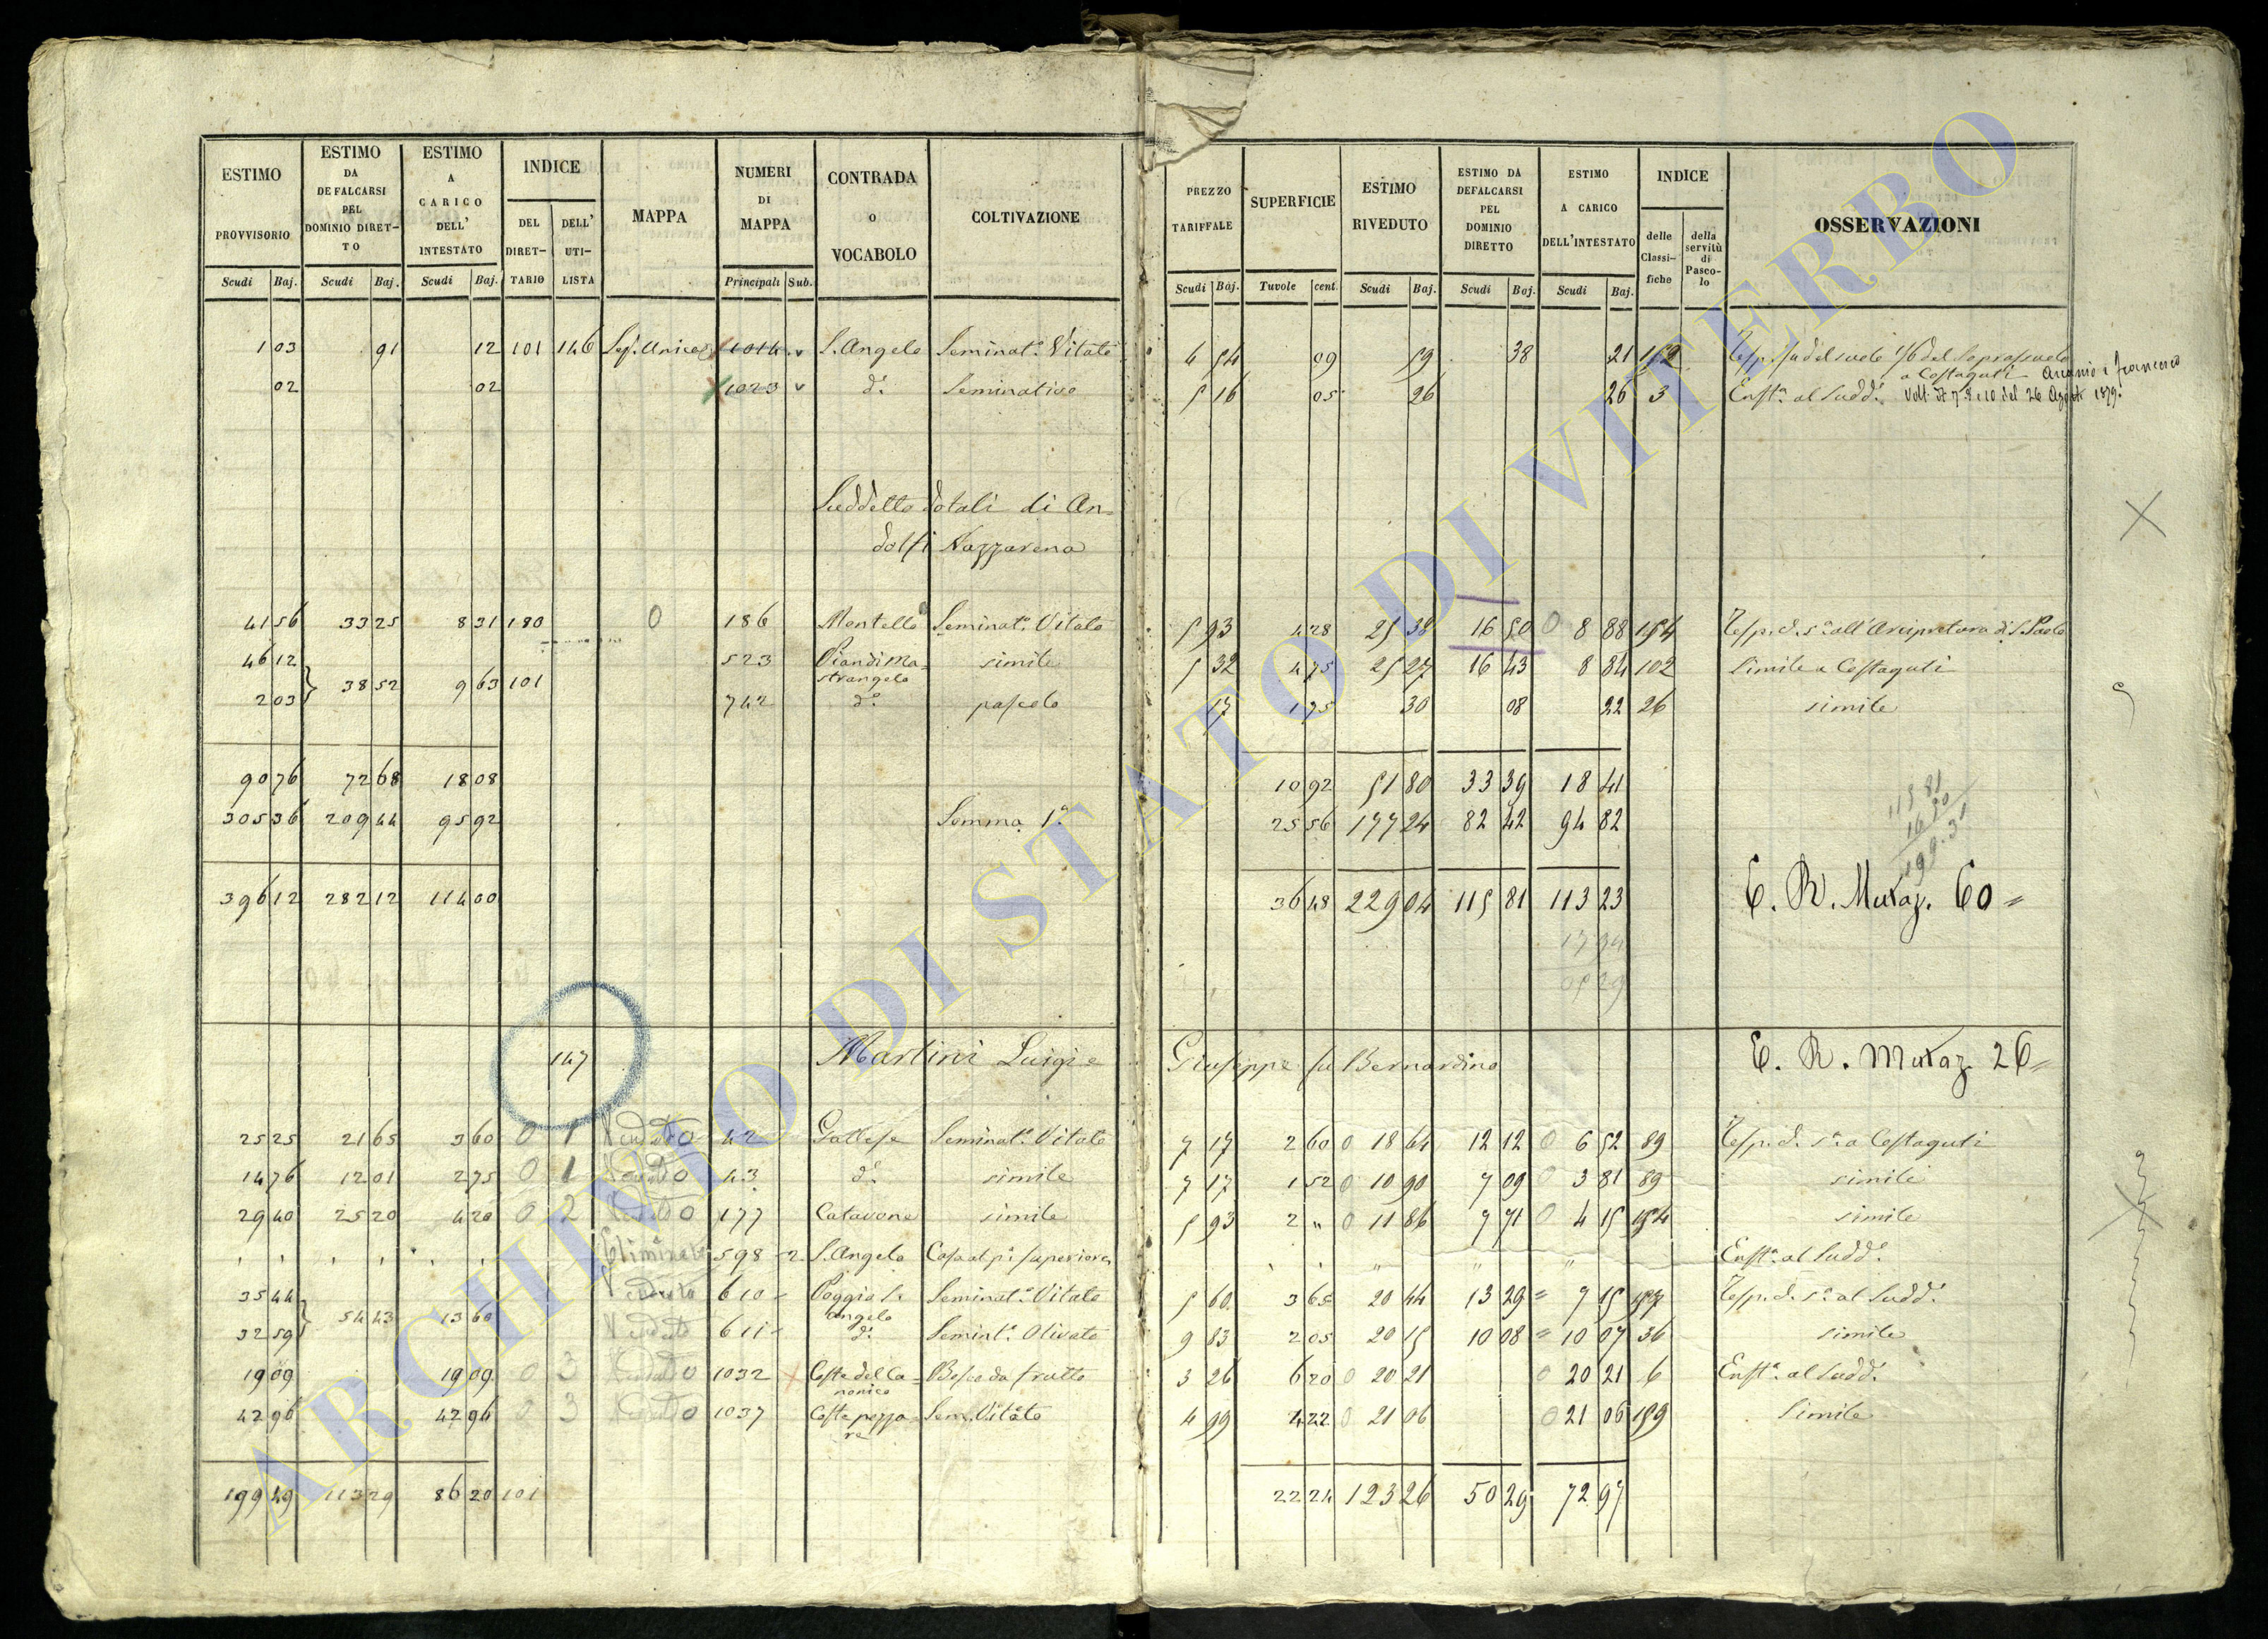 ESTIMO PROVVISORIO Scudi Baj.
ESTIMO DA DEFALCARSI PEL DOMINIO DIRETTO Scudi Baj.
ESTIMO A CARICO DELL' INTESTATO Scudi Baj.
INDICE DEL DIRETTARIO DELL' UTILISTA
MAPPA
NUMERI DI MAPPA Principali Sub.
CONTRADA o VOCABOLO
COLTIVAZIONE
PREZZO TARIFFALE Scudi Baj.
SUPERFICIE Tavole cent.
ESTIMO RIVEDUTO Scudi Baj.
ESTIMO DA DEFALCARSI PEL DOMINIO DIRETTO Scudi Baj.
ESTIMO A CARICO DELL'INTESTATO Scudi Baj.
INDICE delle Classifiche della servitù di Pascolo
OSSERVAZIONI
1 03 91 12 101 146 1014 S. Angelo Seminat.º Vitato 4 54 09 59 38 21 152
a Costaguti
02 02 1023 d.º Seminativo 5 16 05 26 26 3 Enft.ª al Sudd.º 26 Agosto 1879.
Suddetto dotali di An-
dolfi Nazzarena
41 56 33 25 8 31 180 0 186 Montello Seminat.º Vitato 5 93 4 28 25 38 16 50 0 8 88 154 all'Arcipretura di S. Paolo
46 12 523 Piandima- simile 5 32 4 75 25 27 16 43 8 84 102 Simile a Costaguti
38 52 9 63 101 strangelo
2 03 742 d.º pascolo 17 1 75 30 08 22 26 simile
90 76 72 68 18 08 10 92 51 80 33 39 18 41
305 36 209 44 95 92 Somma 1.ª 25 56 177 24 82 42 94 82
115 81
16 50
396 12 282 12 114 00 36 48 229 04 115 81 113 23 E. R. Mutaz. 60
147 Martini Luigi e Giuseppe fu Bernardino E. R. Mutaz. 26
25 25 21 65 3 60 0 1 Venduto 42 Gallese Seminat.º Vitato 7 17 2 60 0 18 64 12 12 0 6 52 89 a Costaguti
14 76 12 01 2 75 0 1 Venduto 43 d.º simile 7 17 1 52 0 10 90 7 09 0 3 81 89 simile
29 40 25 20 4 20 0 2 Venduto 177 Catavone simile 5 93 2 " 0 11 86 7 71 0 4 15 154 simile
Eliminato 598 2 S. Angelo Casa al p.º superiore Enft.ª al Sudd.º
35 44 Venduto 610 Poggio S. Seminat.º Vitato 5 60 3 65 20 44 13 29 7 15 157 al Sudd.º
54 43 13 60 Angelo
32 59 Venduto 611 d.º Semint.º Olivato 9 83 2 05 20 15 10 08 10 07 36 simile
19 09 19 09 0 3 Venduto 1032 Coste del Ca- Bosco da frutto 3 26 6 20 0 20 21 0 20 21 6 Enft.ª al Sudd.º
nonico
42 96 42 96 0 3 Venduto 1037 Costa pozza- Sem. Vitato 4 99 4 22 0 21 06 0 21 06 159 Simile
re
199 49 113 29 86 20 101 22 24 123 26 50 29 72 97
ARCHIVIO DI STATO DI VITERBO